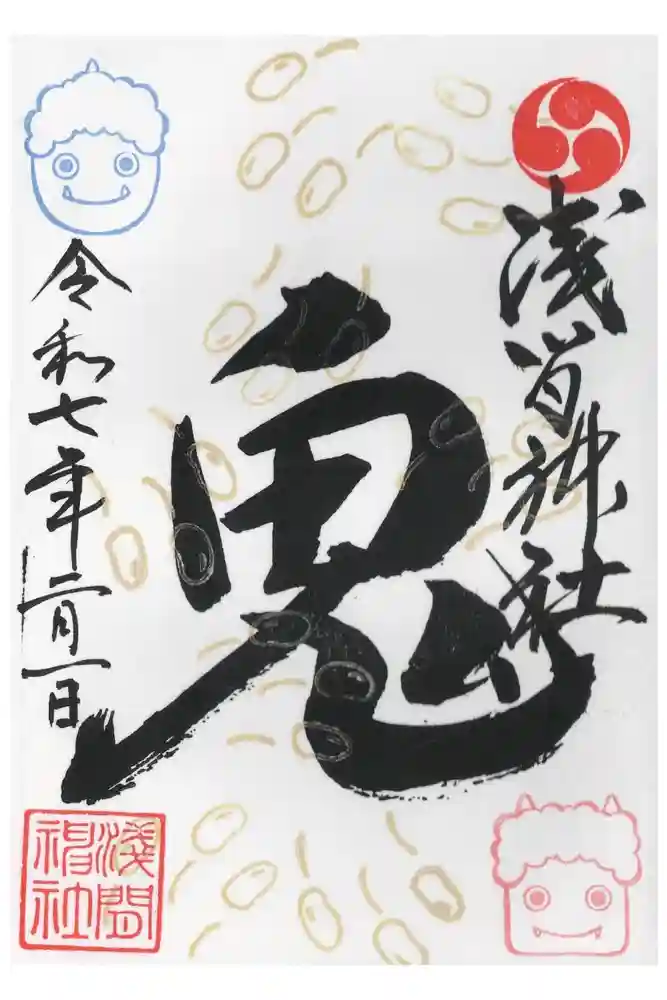 浅间神社
鬼
令和七年二月一日
淺間神社